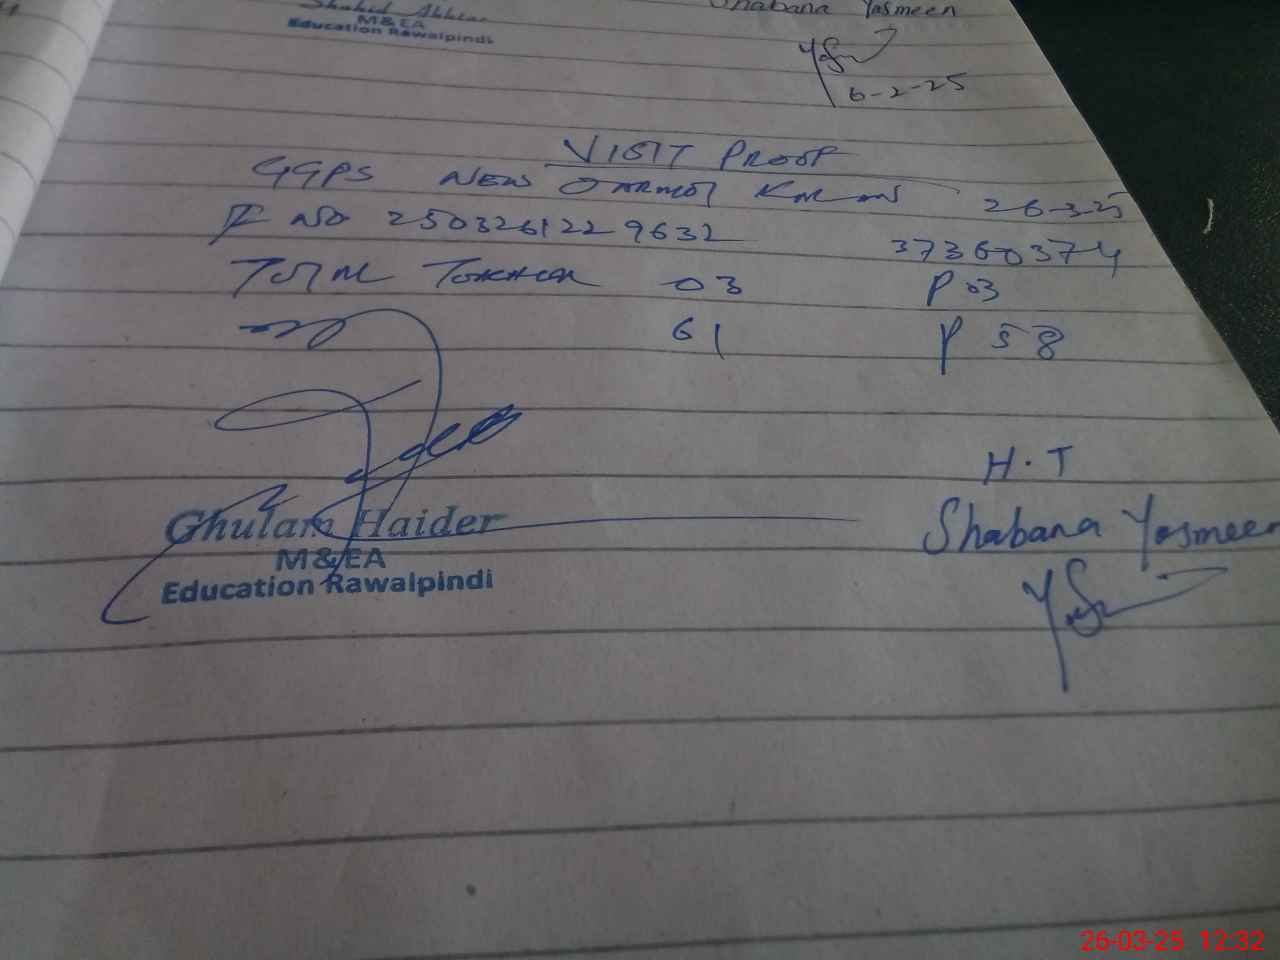 Shahid Akhtar
M&EA
Education Rawalpindi
Shabana Yasmeen
6-2-25
VISIT PROOF
GGPS NEW KALAN 26-3-25
F NO 2503261229632 37360374
TOTAL TEACHER 03 P 03
61 P 58
H.T
Shabana Yasmeen
Ghulam Haider
M&EA
Education Rawalpindi
26-03-25 12:32